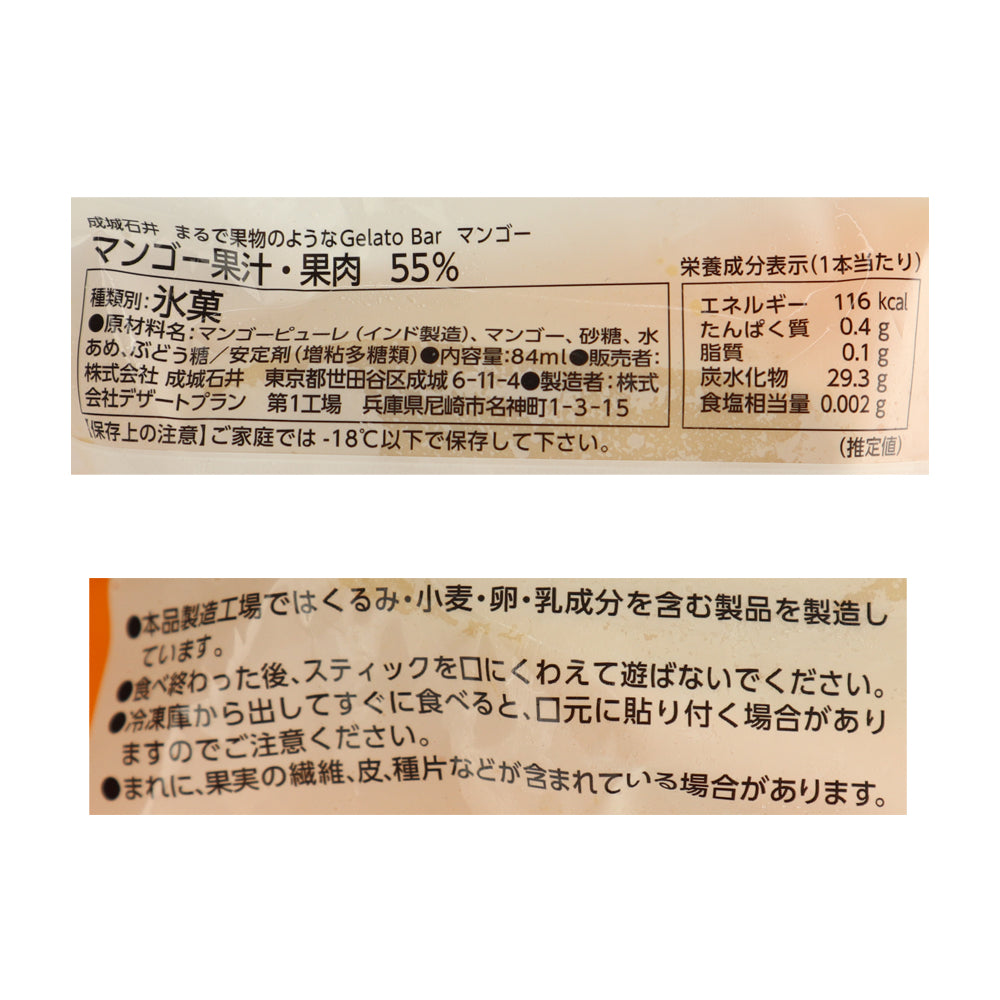 成城石井 まるで果物のようなGelato Bar マンゴー
マンゴー果汁・果肉 55%
種類別:氷菓
●原材料名:マンゴーピューレ(インド製造)、マンゴー、砂糖、水
あめ、ぶどう糖/安定剤(増粘多糖類)●内容量:84ml●販売者:
株式会社 成城石井 東京都世田谷区成城6-11-4●製造者:株式
会社デザートプラン 第1工場 兵庫県尼崎市名神町1-3-15
【保存上の注意】ご家庭では-18℃以下で保存して下さい。
栄養成分表示(1本当たり)
エネルギー 116 kcal
たんぱく質 0.4 g
脂質 0.1 g
炭水化物 29.3 g
食塩相当量 0.002 g
(推定値)
●本品製造工場ではくるみ・小麦・卵・乳成分を含む製品を製造し
ています。
●食べ終わった後、スティックを口にくわえて遊ばないでください。
●冷凍庫から出してすぐに食べると、口元に貼り付く場合があり
ますのでご注意ください。
●まれに、果実の繊維、皮、種片などが含まれている場合があります。